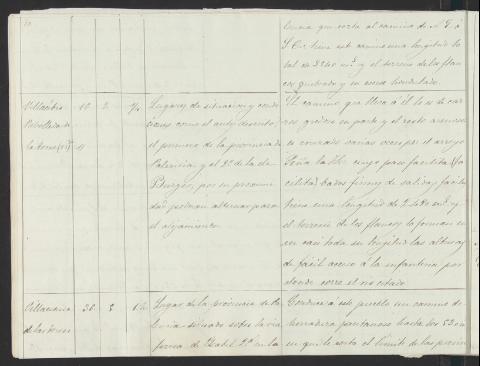 lerma que corta al camino de N. E. á
S. O.; tiene este camino una longitud to
tal de 2240 m.s y el terreno de los flan
cos quebrado y en zonas hondulado.
Villacidre 10 2
Rebolleda de
la torre
Lugares de situacion y condi
ciones como el ante descrito,
el primero de la provincia de
Palencia y el 2.º de la de
Burgos, por su proximi
dad podrian alternar para
el alojamiento.
El camino que lleva á él lo es de car
ros, gredoso en parte y el resto arenoso
es cruzado varias veces por el arroyo
cuyo paso facilita (fa
cilita) vados firmes de salida fácil;
tiene una longitud de y
el terreno de los flancos lo forman en
en casi toda su longitud las alturas
de fácil acceso á la infanteria, por
donde corre el rio citado.
Villanueva 36 5
de las torres
Lugar de la provincia de Pa
lencia situado sobre la via
ferrea de Isabel 2.ª en la
Conduce á este pueblo un camino de
herradura pantanoso hasta los 520 m
en que le corta el límite de las provin